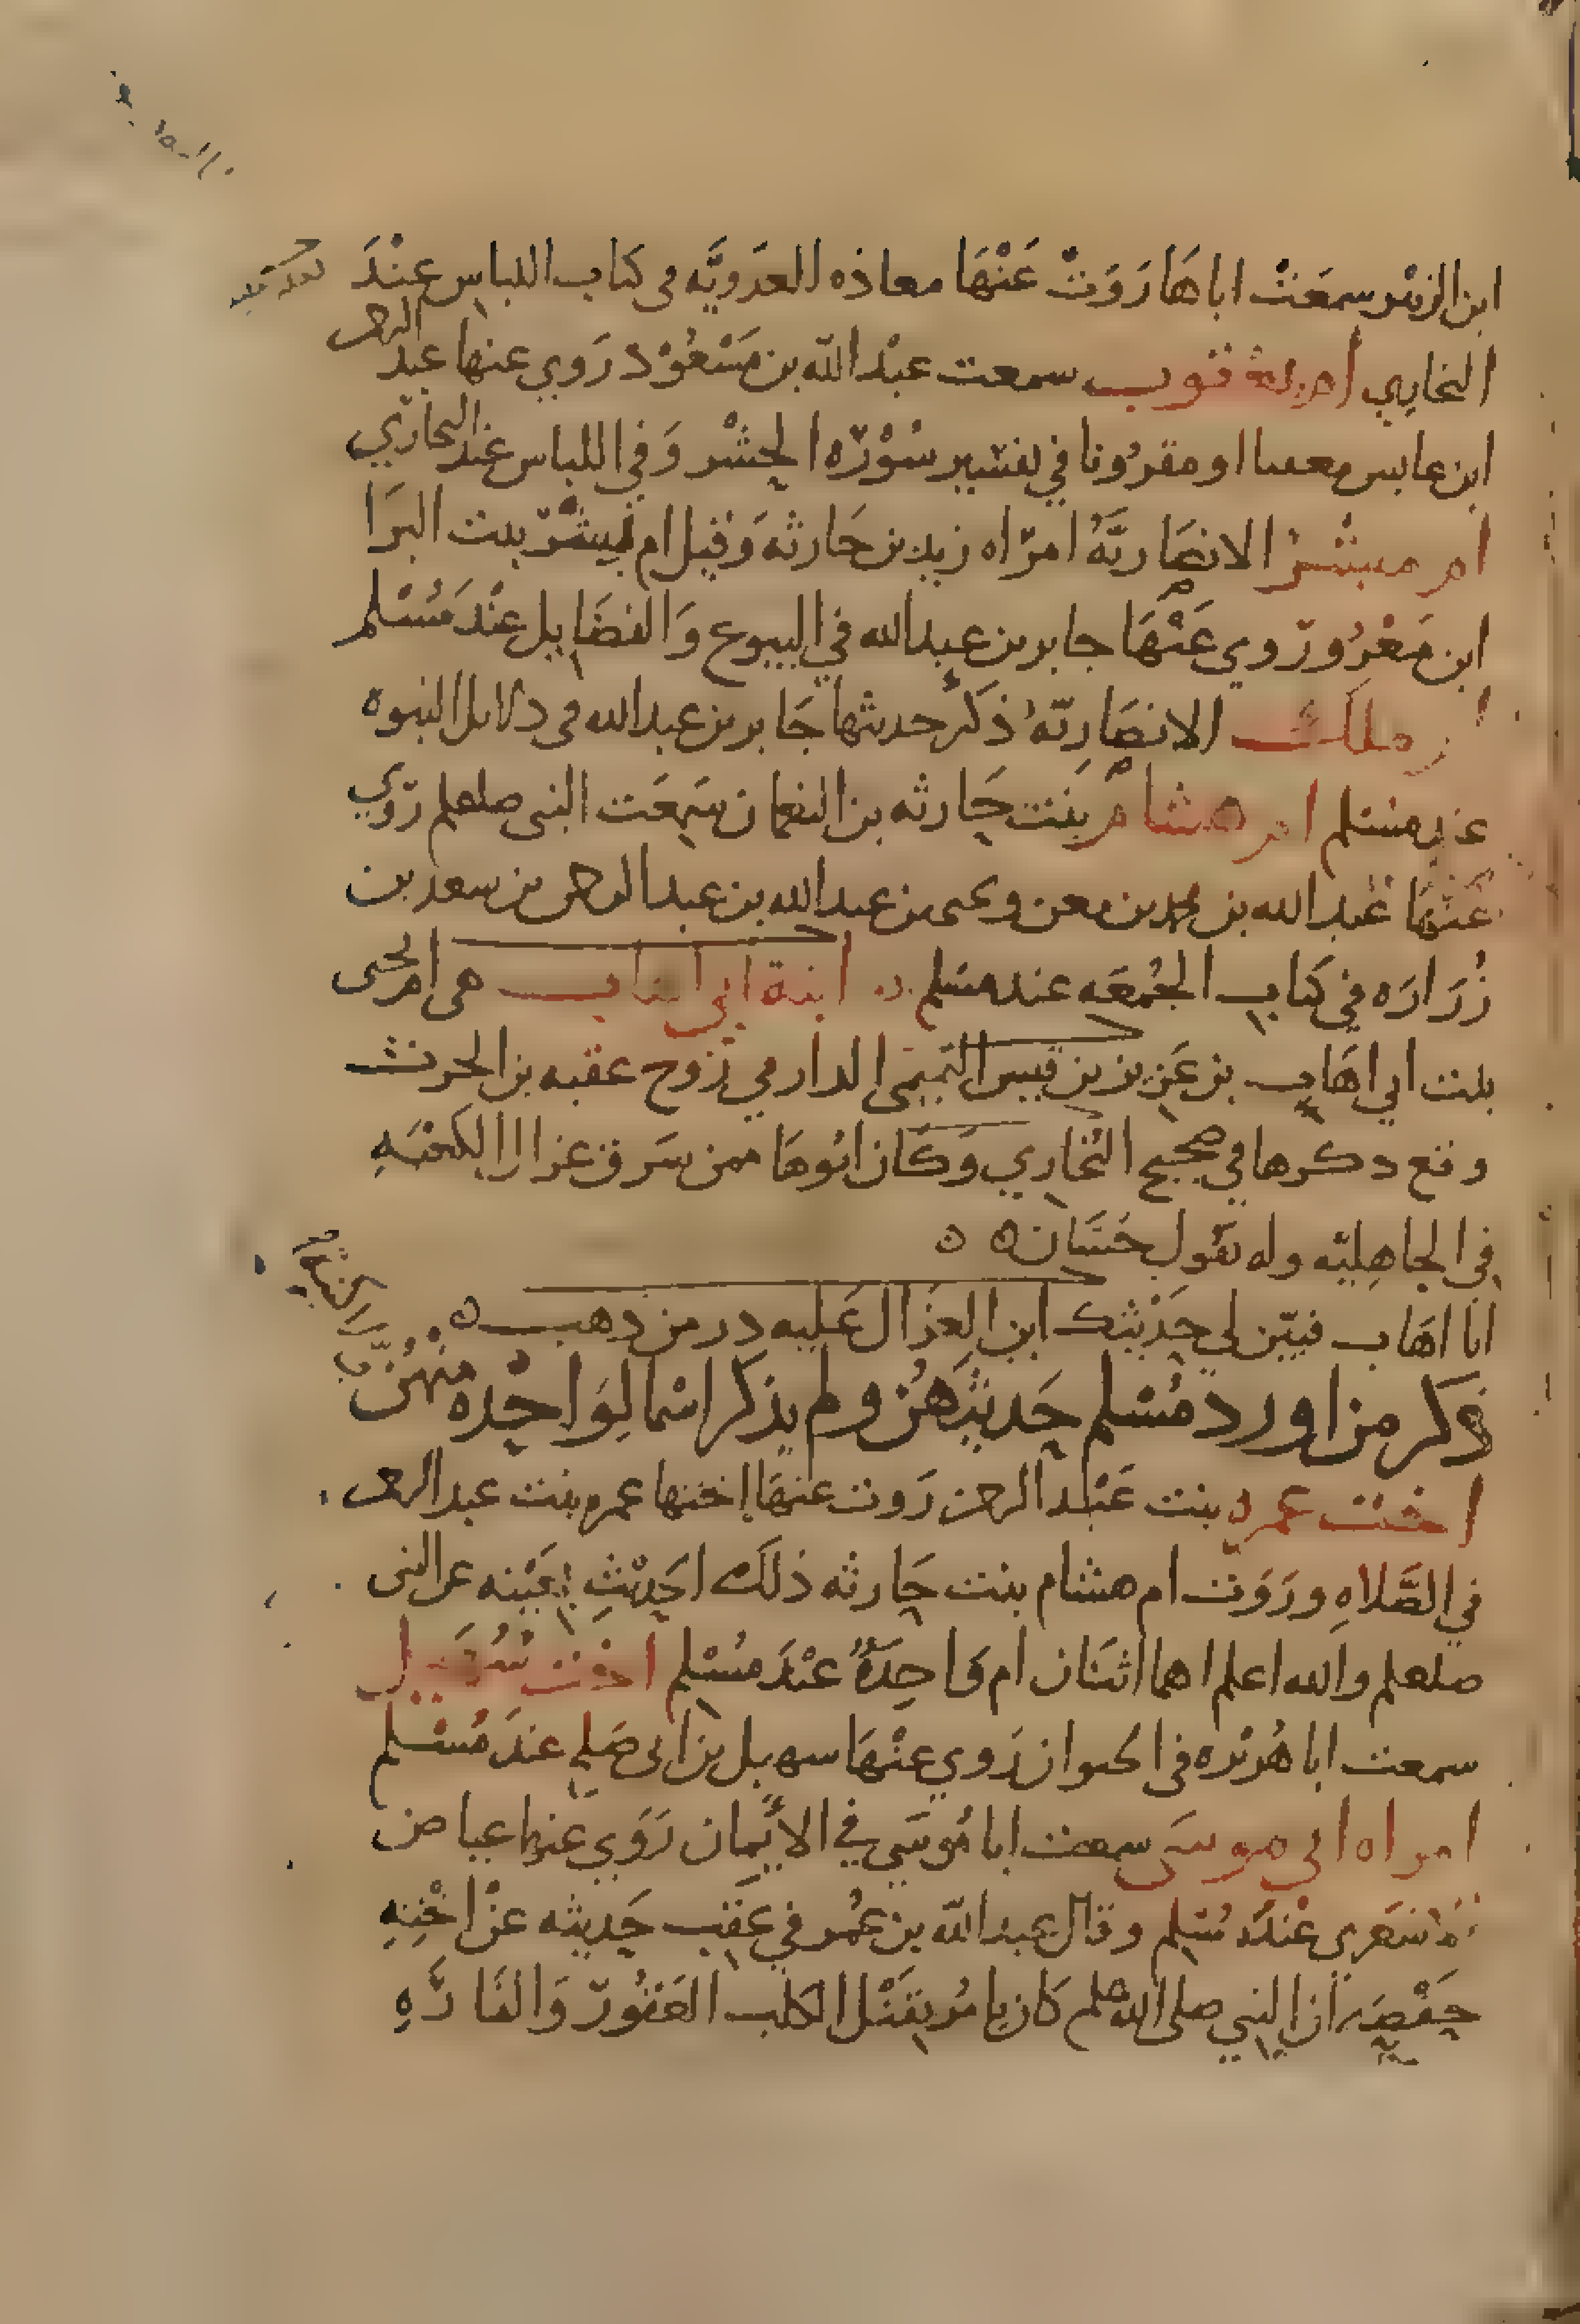 ابن الزبير سمعت اباها روت عنها معاذه العدويه في كتاب اللباس عند
البخاري ام يعقوب سمعت عبد الله بن مسعود روي عنها عبد الرحمن
ابن عابس معسا او مقرونا في تفسير سورة الحشر وفي اللباس عند البخاري
ام مبشر الانصارية امراه زيد بن حارثه وقيل ام مبشر بنت البرا
ابن معرور روي عنها جابر بن عبد الله في البيوع والفضايل عند مسلم
ملك الانصارية ذكر حديثها جابر بن عبد الله في دلايل النبوه
عند مسلم ام هشام بنت حارثه بن النعمان سمعت النبي صلعم روي
عنها عبد الله بن محمد بن معن ويحيى بن عبد الله بن عبد الرحمن بن سعد بن
زراره في كتاب الجمعه عند مسلم ابنة ابي اهاب هي ام يحيى
بنت ابي اهاب بن عزيز بن قيس التميمي الدارمي زوج عقبه بن الحرث
وقع ذكرها في صحيح البخاري وكان ابوها ممن سرق غزال الكعبه
في الجاهلية وله يقول حسان ٥ ٥
ابا اهاب فبين لي حديثك اين الغزال عليه در من ذهب ٥
ذكر من اورد مسلم حديثهن ولم يذكر اسما لواحده منهن
اخت عمره بنت عبد الرحمن روت عنها اختها عمره بنت عبد الرحمن
في الصلاه وروت ام هشام بنت حارثه ذلك احديث بعينه عن النبي
صلعم والله اعلم اهما اثنتان ام واحدة عند مسلم اخت سهيل
سمعت ابا هريره في روي عنها سهيل بن ابي صلح عند مسلم
امراه ابي موسى سمعت ابا موسي في الايمان روي عنها عياض
الاشعري عند مسلم وقال عبد الله بن عمر في عقب حديثه عن اخته
حفصه ان النبي صلى الله علم كان يامر بقتل الكلب العقور والفاره